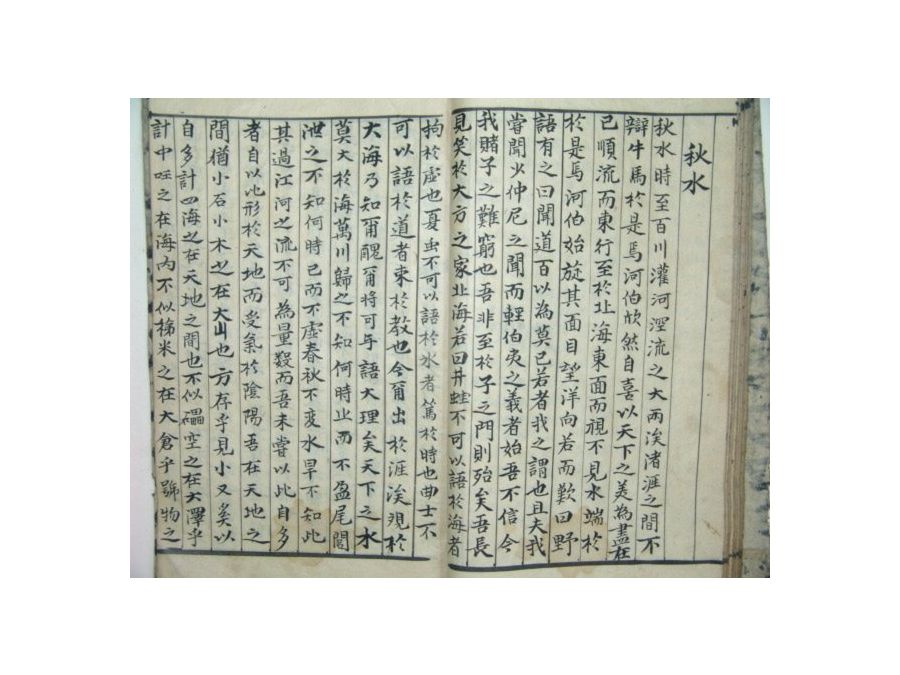 秋水
秋水時至百川灌河涇流之大兩涘渚涯之間不
辯牛馬於是焉河伯欣然自喜以天下之美為盡在
已順流而東行至於北海東面而視不見水端於
於是焉河伯始旋其面目望洋向若而歎曰野
語有之曰聞道百以為莫已若者我之謂也且夫我
嘗聞少仲尼之聞而輕伯夷之義者始吾不信今
我睹子之難窮也吾非至於子之門則殆矣吾長
見笑於大方之家北海若曰井蛙不可以語於海者
拘於虛也夏虫不可以語於氷者篤於時也曲士不
可以語於道者束於教也今爾出於涯涘覌於
大海乃知爾醜爾將可与語大理矣天下之水
莫大於海萬川歸之不知何時止而不盈尾閭
泄之不知何時已而不虛春秋不变水旱不知此
其過江河之流不可為量數而吾未嘗以此自多
者自以比形於天地而受氣於陰陽吾在天地之
間猶小石小木之在大山也方存乎見小又奚以
自多計四海之在天地之間也不似礨空之在大澤乎
計中国之在海內不似稊米之在大倉乎號物之